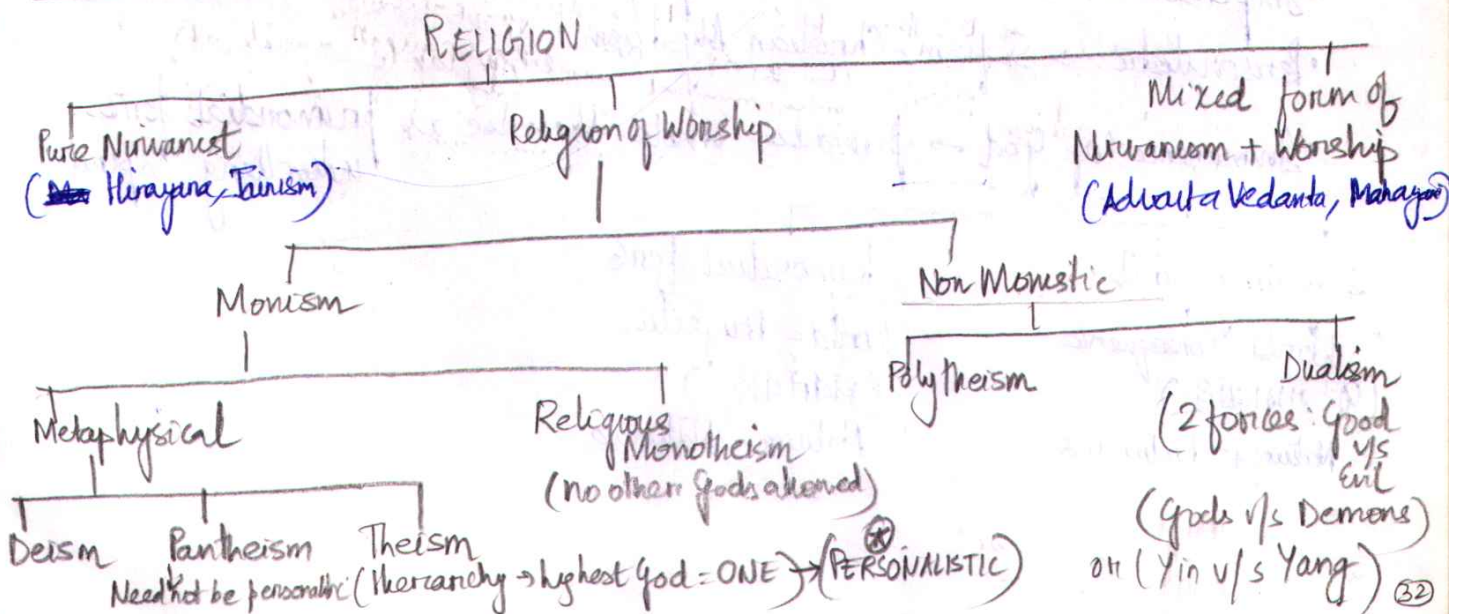 RELIGION
Pure Nirvanist
(Hinayana, Jainism)
Religion of Worship
Mixed form of
Nirvanism + Worship
(Advaita Vedanta, Mahayan)
Monism
Non Monistic
Metaphysical
Religious
Monotheism
(no other Gods allowed)
Polytheism
Dualism
(2 forces: Good
v/s
Evil
(Gods v/s Demons)
or (Yin v/s Yang)
Deism
Pantheism
Need not be personalistic
Theism
(Hierarchy → highest God = ONE) → (PERSONALISTIC)
32